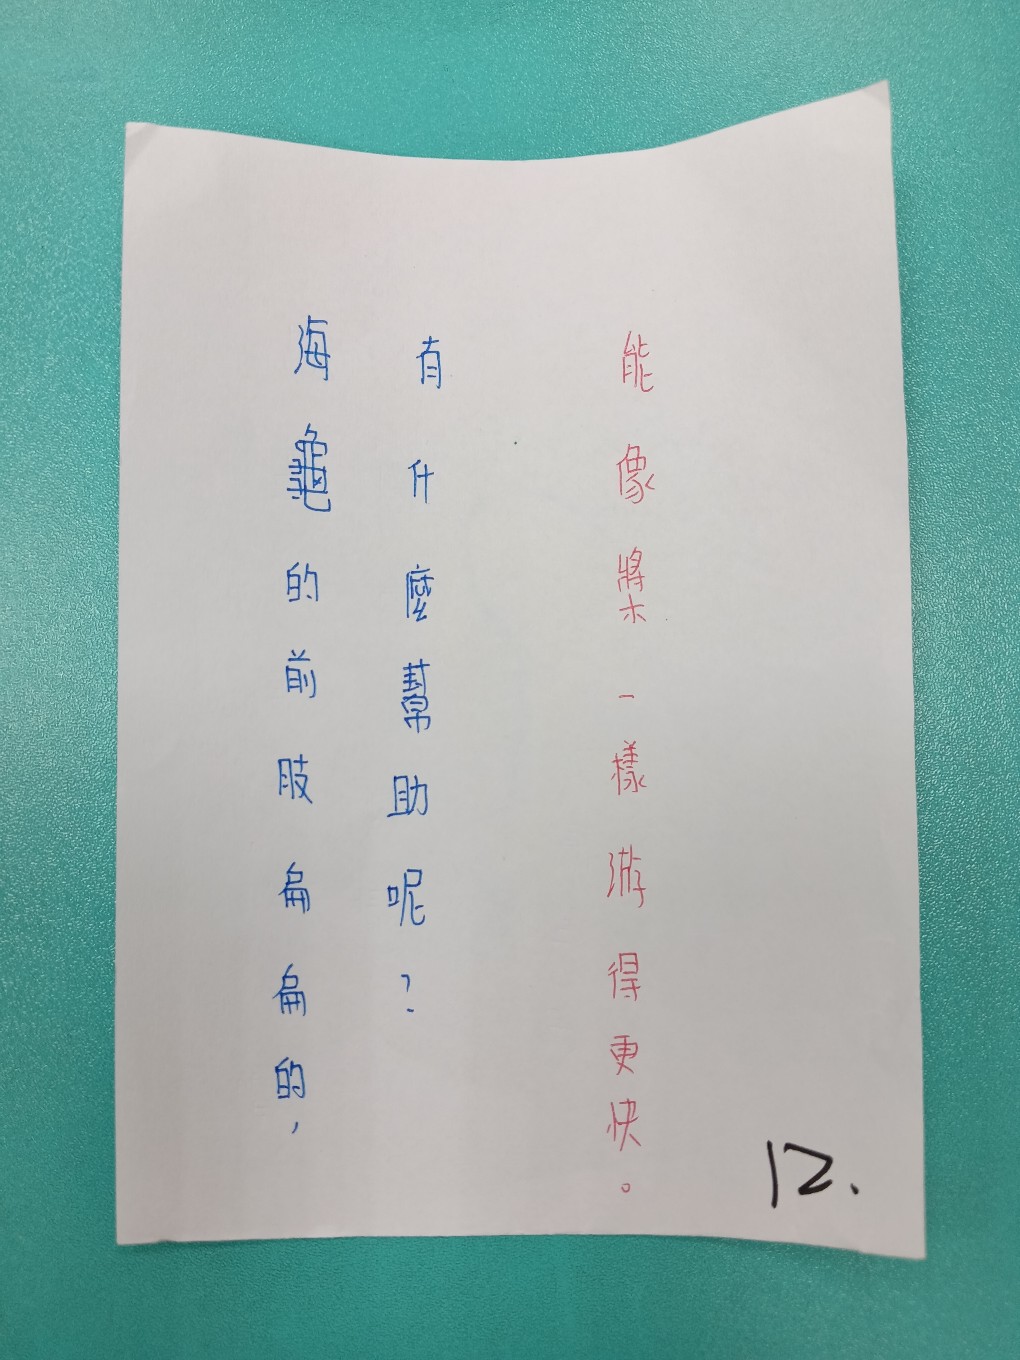 海龜的前肢扁扁的，
有什麼幫助呢？
能像槳一樣游得更快。
12.